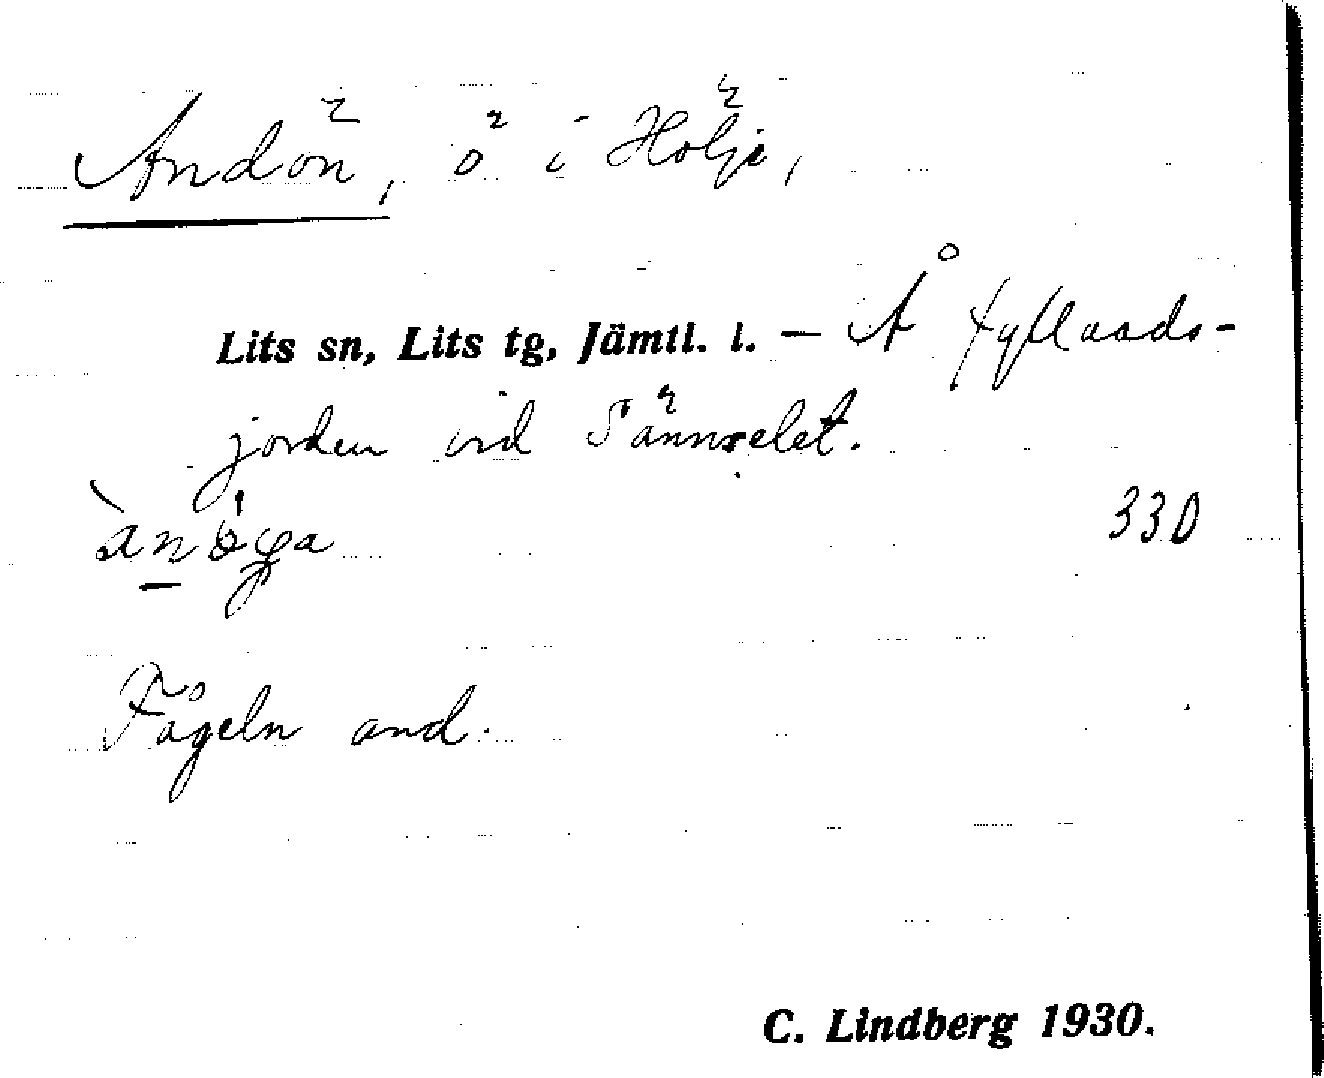 Andön, ö i Hölje,
Lits sn, Lits tg, Jämtl. l. – Å Kyllaads-
jorden vid Sännselet.
àn öga
330
Fågeln and.
C. Lindberg 1930.